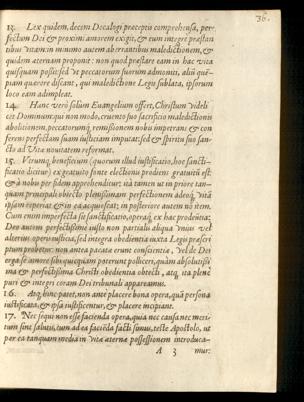 36.
13. Lex quidem, decem Decalogi præceptis comprehensa, per-
fectum Dei & proximi amorem exigit, & eum integrè præstan
tibus vitam: in minimo autem aberrantibus maledictionem, &
quidem æternam proponit: non quòd præstare eam in hac vita
quisquam possit: sed vt peccatorum suorum admoniti, aliū quē-
piam quærere discant, qui maledictione Legis sublata, ipsorum
loco eam adimpleat.
14. Hanc verò solùm Euangelium offert, Christum videli
cet Dominum: qui non modò, cruento suo sacrificio maledictionis
abolitionem, peccatorumq́; remissionem nobis impetrans & con
ferens perfectam suam iustitiam imputat: sed & spiritu suo san-
cto ad Vitæ nouitatem reformat.
15. Vtrumq́; beneficium (quorum illud iustificatio, hoc sancti-
ficatio dicitur) ex gratuito fonte electionis prodiens gratuitū est
& à nobis per fidem apprehenditur: ita tamen ut in priore tan-
quam principali obiecto plenissimam perfectionem adeoq́; vitā
ipsam reperiat & in ea acquiescat: in posteriore autem nō item.
Cum enim imperfecta sit sanctificatio, operaq́; ex hac prodeūtia:
Deo autem perfectissimè iusto non partialis aliqua vnius vel
alterius operis iustitia, sed integra obedientia iuxta Legis præscri
ptum probetur: non antea pacatæ erunt conscientiæ, vel de Dei
erga se amore sibi quicquam poterunt polliceri, quàm absolutissi-
ma & perfectissima Christi obedientia obtecti, atq́; ita plenè
puri & integri coram Dei tribunali appareamus.
16. Atq́; hinc patet, non antè placere bona opera, quā persona
iustificata, & ipsa iustificentur, & placere incipiant.
17. Nec sequi non esse facienda opera, quia nec causa nec meri-
tum sint salutis, tum ad ea faciēda facti simus, teste Apostolo, ut
per ea tanquam media in vitæ æternæ possessionem introduca-
A 3 mur: